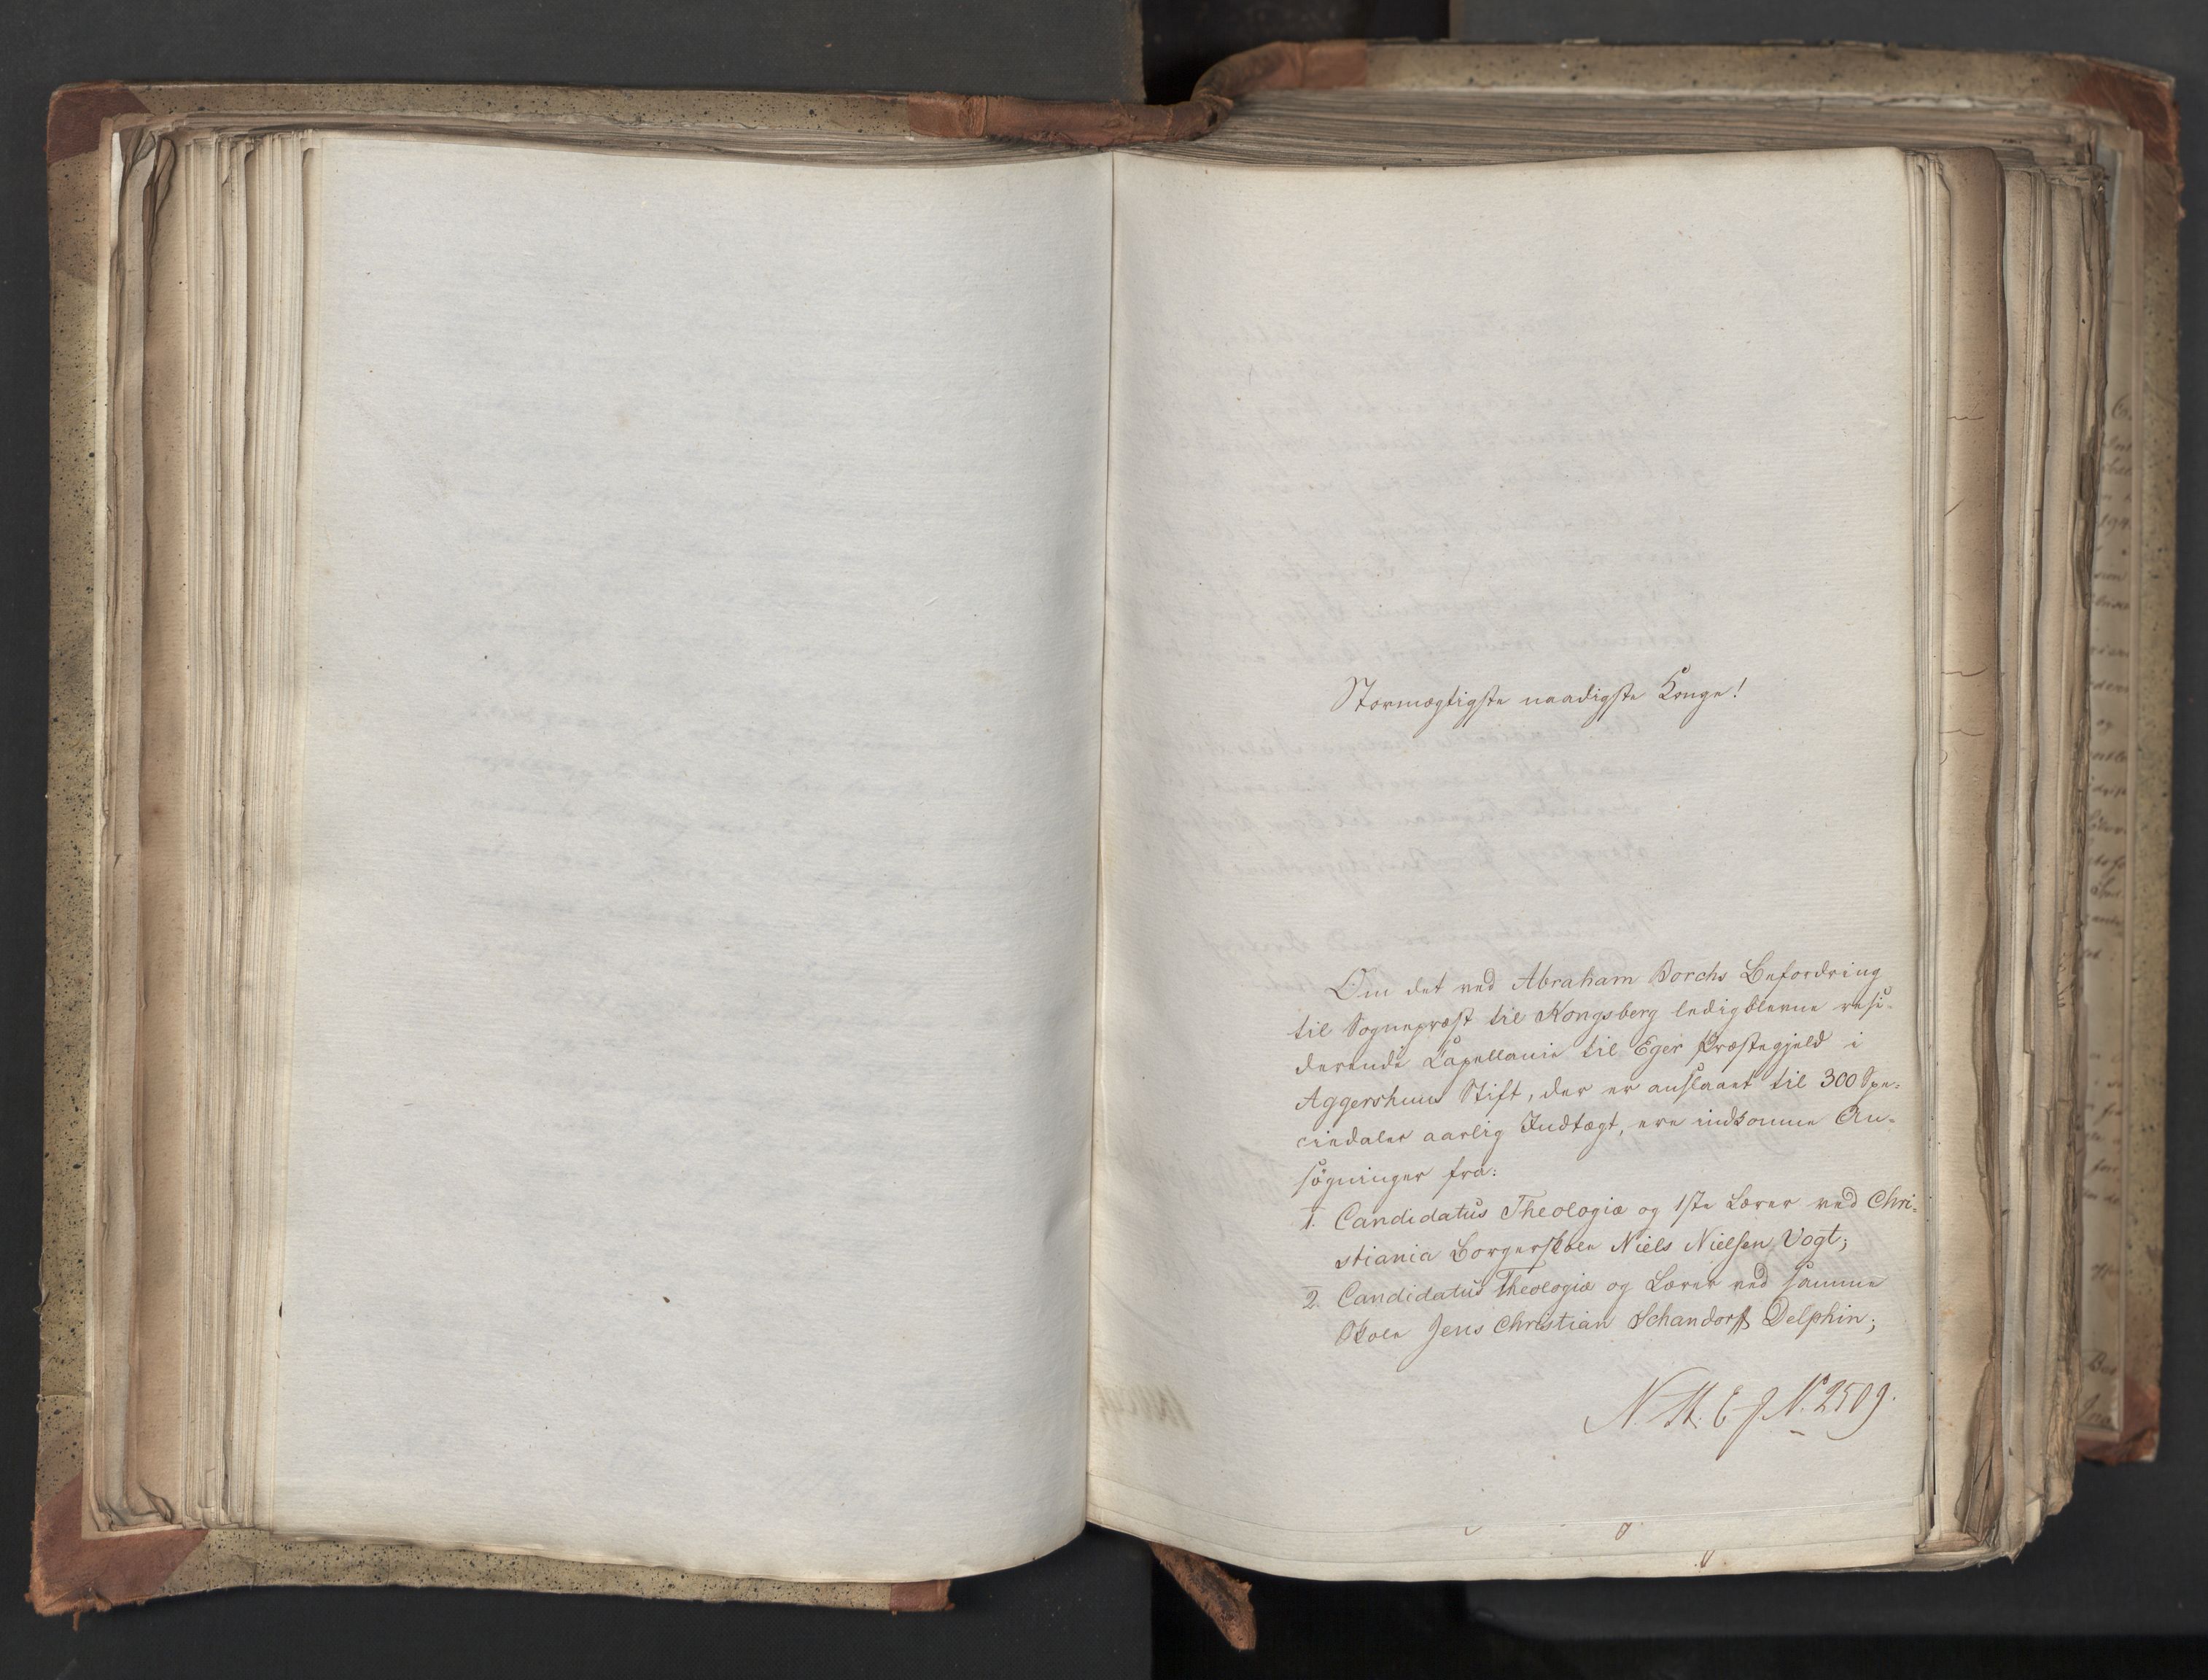 Stormægtigste naadigste Konge!
Om det ved Abraham Borchs Befordring
til Sognepræst til Kongsberg ledigblevne resi-
derende Capellanie til Eger Præstegjeld i
Aggershuus Stift, der er anslaaet til 300 Spe-
ciedaler aarlig Indtægt, ere indkomne An-
søgninger fra:
1. Candidatus Theologiæ og 1ste Lærer ved Chri-
stiania Borgerskole Niels Nielsen Vogt;
2. Candidatus Theologiæ og Lærer ved samme
Skole Jens Christian Schandorff Delphin;
No. 2509.